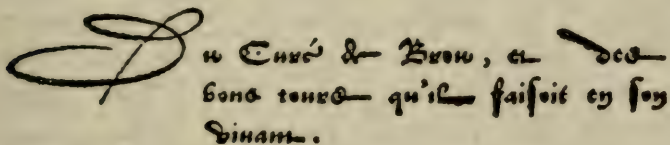 Du Curé de Brou, et des
bons tours qu'il faisoit en son
vivant.